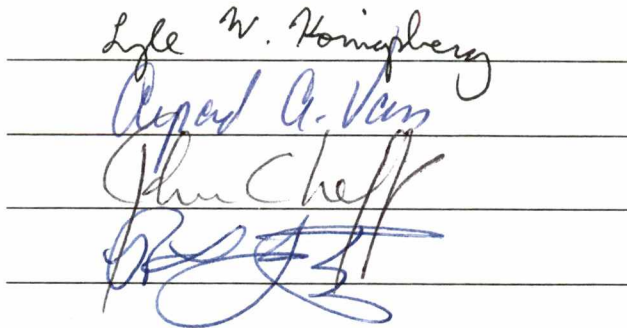 Lyle W. Konigsberg
Arpad A. Vass
John Cheff